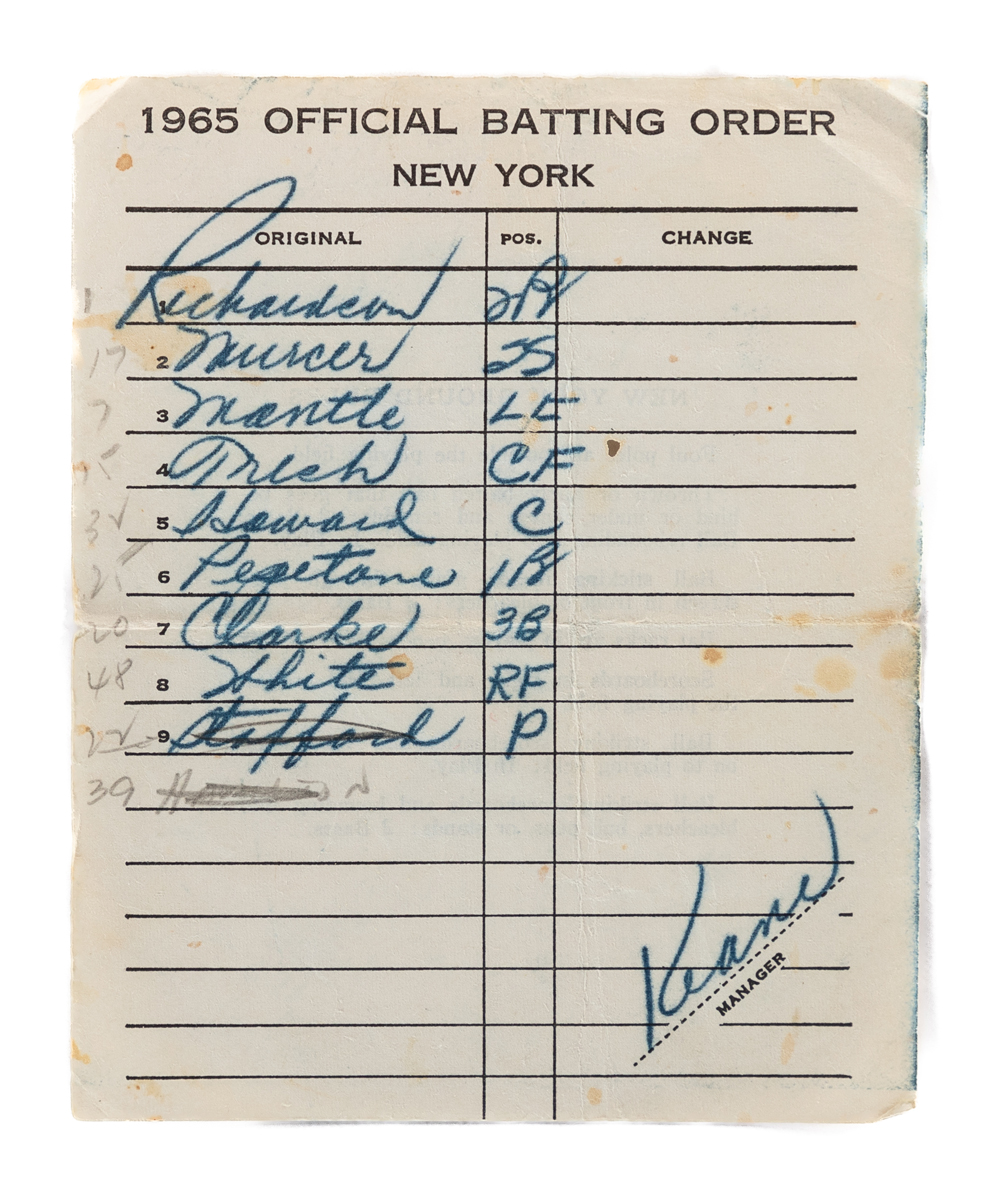 1965 OFFICIAL BATTING ORDER
NEW YORK
ORIGINAL POS. CHANGE
1 1 Richardson 2B
17 2 Murcer SS
7 3 Mantle LF
4 Tresh CF
32 5 Howard C
25 6 Pepitone 1B
20 7 Clarke 3B
48 8 White RF
22 9 Stafford P
39
Keane
MANAGER